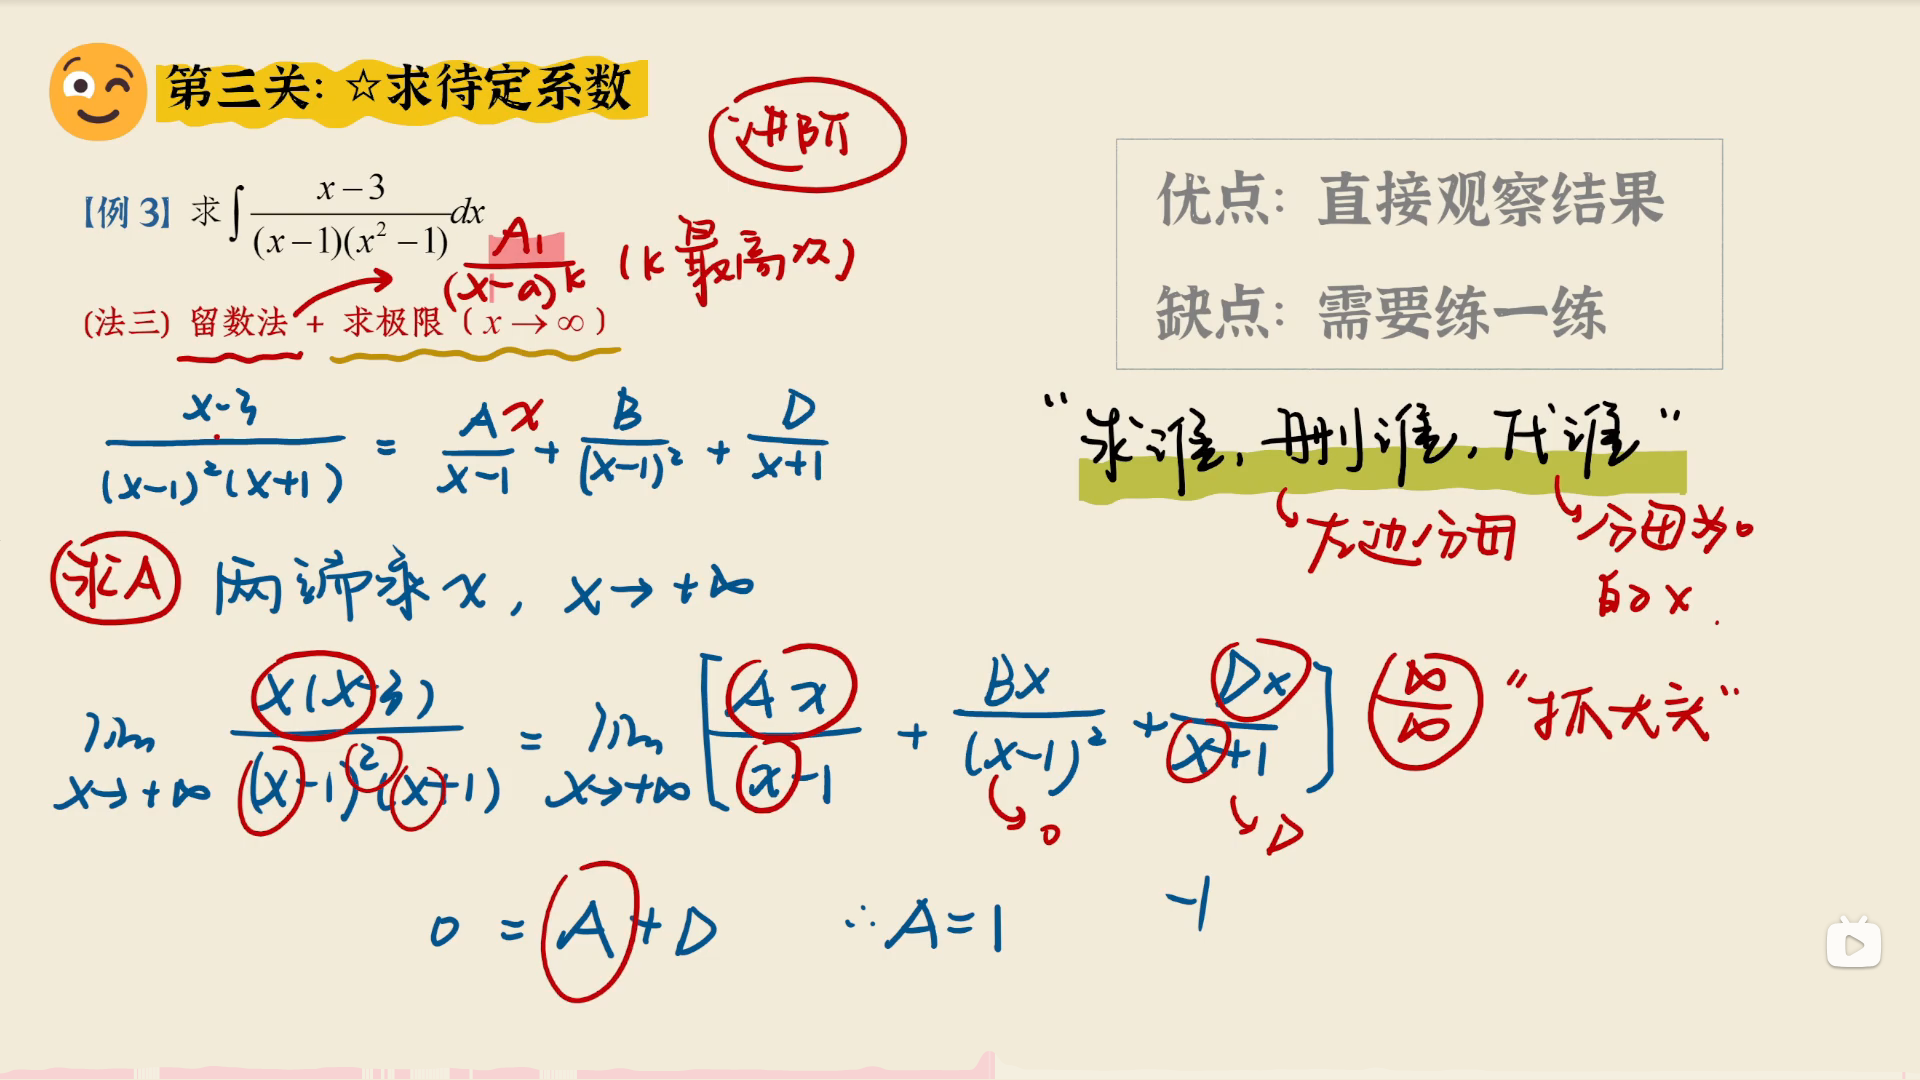 第三关: ☆求待定系数
进阶
【例3】求∫ (x-3)/((x-1)(x²-1)) dx
A₁/(x-a)^k (k最高次)
(法三) 留数法 + 求极限 (x→∞)
优点: 直接观察结果
缺点: 需要练一练
(x-3)/((x-1)²(x+1)) = A/(x-1) x + B/(x-1)² + D/(x+1)
“求谁, 删谁, 代谁”
左边分母
分母为0
的x.
求A 两端乘x, x→+∞
lim x→+∞ x(x-3)/((x-1)²(x+1)) = lim x→+∞ [Ax/(x-1) + Bx/(x-1)² + Dx/(x+1)] ∞/∞ “抓大头”
0 D
0 = A + D ∴A=1 -1